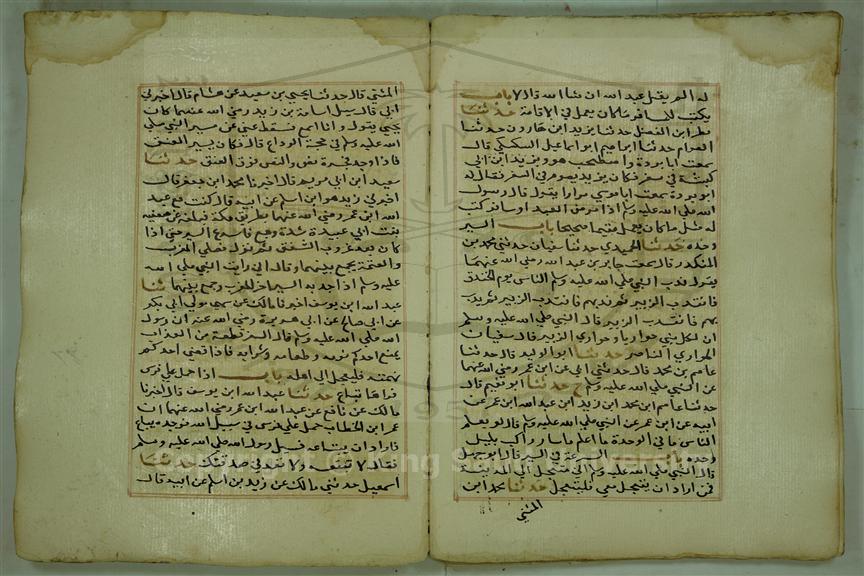 له الم يقتل عبد الله ان شا الله قال لا باب
يكتب للمسافر ما كان يعمل في الاقامة حدثنا
مطر ابن الفضل حدثنا يزيد ابن هارون حدثنا
العوام حدثنا ابراهيم ابو اسماعيل السكسكي قال
سمعت ابا بردة واصطحب هو ويزيد ابن ابي
كبشة في سفر فكان يزيد يصوم في السفر فقال له
ابو بردة سمعت ابا موسي مرارا يقول قال رسول
الله صلي الله عليه وسلم اذا مرض العبد او سافر كتب
له مثل ما كان يعمل مقيما صحيحا باب السير
وحده حدثنا الحميدي حدثنا سفيان حدثني محمد بن
المنكدر قال سمعت جابر بن عبد الله رضي الله عنهما
يقول ندب النبي صلي الله عليه وسلم الناس يوم الخندق
فانتدب الزبير ثم ندبهم فانتدب الزبير ثم ندب
بهم فانتدب الزبير قال النبي صلي الله عليه وسلم
ان لكل نبي حواريا وحواري الزبير قال سفيان
الحواري الناصر حدثنا ابو الوليد قال حدثنا
عاصم بن محمد قال حدثني ابي عن ابن عمر رضي الله عنهما
عن النبي صلي الله عليه وسلم ح حدثنا ابو نعيم قال
حدثنا عاصم ابن محمد ابن زيد ابن عبد الله ابن عمر عن
ابيه عن ابن عمر عن النبي صلي الله عليه وسلم قال لو يعلم
الناس ما في الوحدة ما اعلم ما سار راكب بليل
وحده باب السرعة في السير قال ابو حميد
قال النبي صلي الله عليه وسلم اني متعجل الي المدينة
فمن اراد ان يتعجل معي فليتعجل حدثنا محمد ابن
المثني
المثني قال حدثنا يحيي بن سعيد عن هشام قال اخبرني
ابي قال سيل اسامة بن زيد رضي الله عنهما كان
يحيي يقول وانا اسمع فسقط عني عن مسير النبي صلي
الله عليه وسلم في حجة الوداع قال فكان يسير العنق
فاذا وجد فجوة نص والنص فوق العنق حدثنا
سعيد ابن ابي مريم قال اخبرنا محمد ابن جعفر قال
اخبرني زيد هو ابن اسلم عن ابيه قال كنت مع عبد
الله ابن عمر رضي الله عنهما بطريق مكة فبلغه عن صفيه
بنت ابي عبيدة شدة وجع فاسرع السير حتي اذا
كان بعد غروب الشفق ثم نزل فصلي المغرب
والعتمة يجمع بينهما وقال اني رايت النبي صلي الله
عليه وسلم اذا جد به السير اخر المغرب وجمع بينهما ثنا
عبد الله ابن يوسف اخبرنا مالك عن سمي مولي ابي بكر
عن ابي صالح عن ابي هريرة رضي الله عنه ان رسول
الله صلي الله عليه وسلم قال السفر قطعة من العذاب
يمنع احدكم نومه وطعامه وشرابه فاذا قضي احدكم
نهمته فليعجل الي اهله باب اذا حمل علي فرس
فراها تباع حدثنا عبد الله ابن يوسف قال اخبرنا
مالك عن نافع عن عبد الله ابن عمر رضي الله عنهما ان
عمر ابن الخطاب حمل علي فرس في سبيل الله فوجده يباع
فاراد ان يبتاعه فسيل رسول الله صلي الله عليه وسلم
فقال لا تبتعه ولا تعد في صدقتك حدثنا
اسمعيل حدثني مالك عن زيد بن اسلم عن ابيه قال